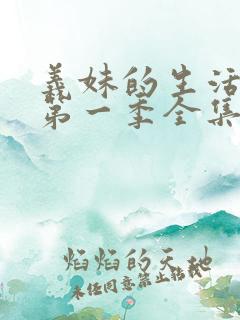 義妹的生活
第一季全集
焰焰的天地
未任同意禁止转载